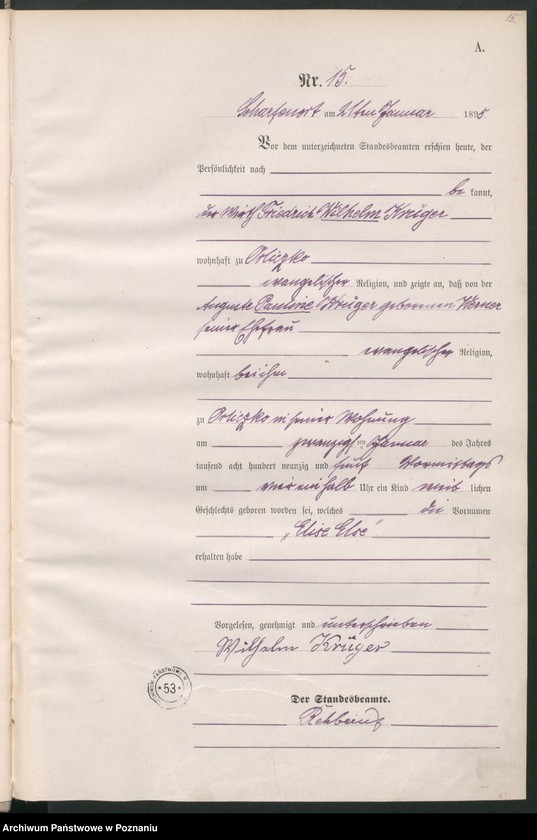 15.
A.
Nr. 15.
Scharfenort am 21ten Januar 1895
Vor dem unterzeichneten Standesbeamten erschien heute, der
Persönlichkeit nach
be kannt,
der Wirth Friedrich Wilhelm Krüger
wohnhaft zu Orliczko
evangelischer Religion, und zeigte an, daß von der
Auguste Pauline Krüger geborenen Werner
seiner Ehefrau
evangelischer Religion,
wohnhaft bei ihm
zu Orliczko in seiner Wohnung
am zwanzigsten Januar des Jahres
tausend acht hundert neunzig und fünf Vormittags
um vier ein halb Uhr ein Kind weib lichen
Geschlechts geboren worden sei, welches die Vornamen
„Elise Else"
erhalten habe
Vorgelesen, genehmigt und unterschrieben
Wilhelm Krüger
53
Der Standesbeamte.
Rehbein
Archiwum Państwowe w Poznaniu